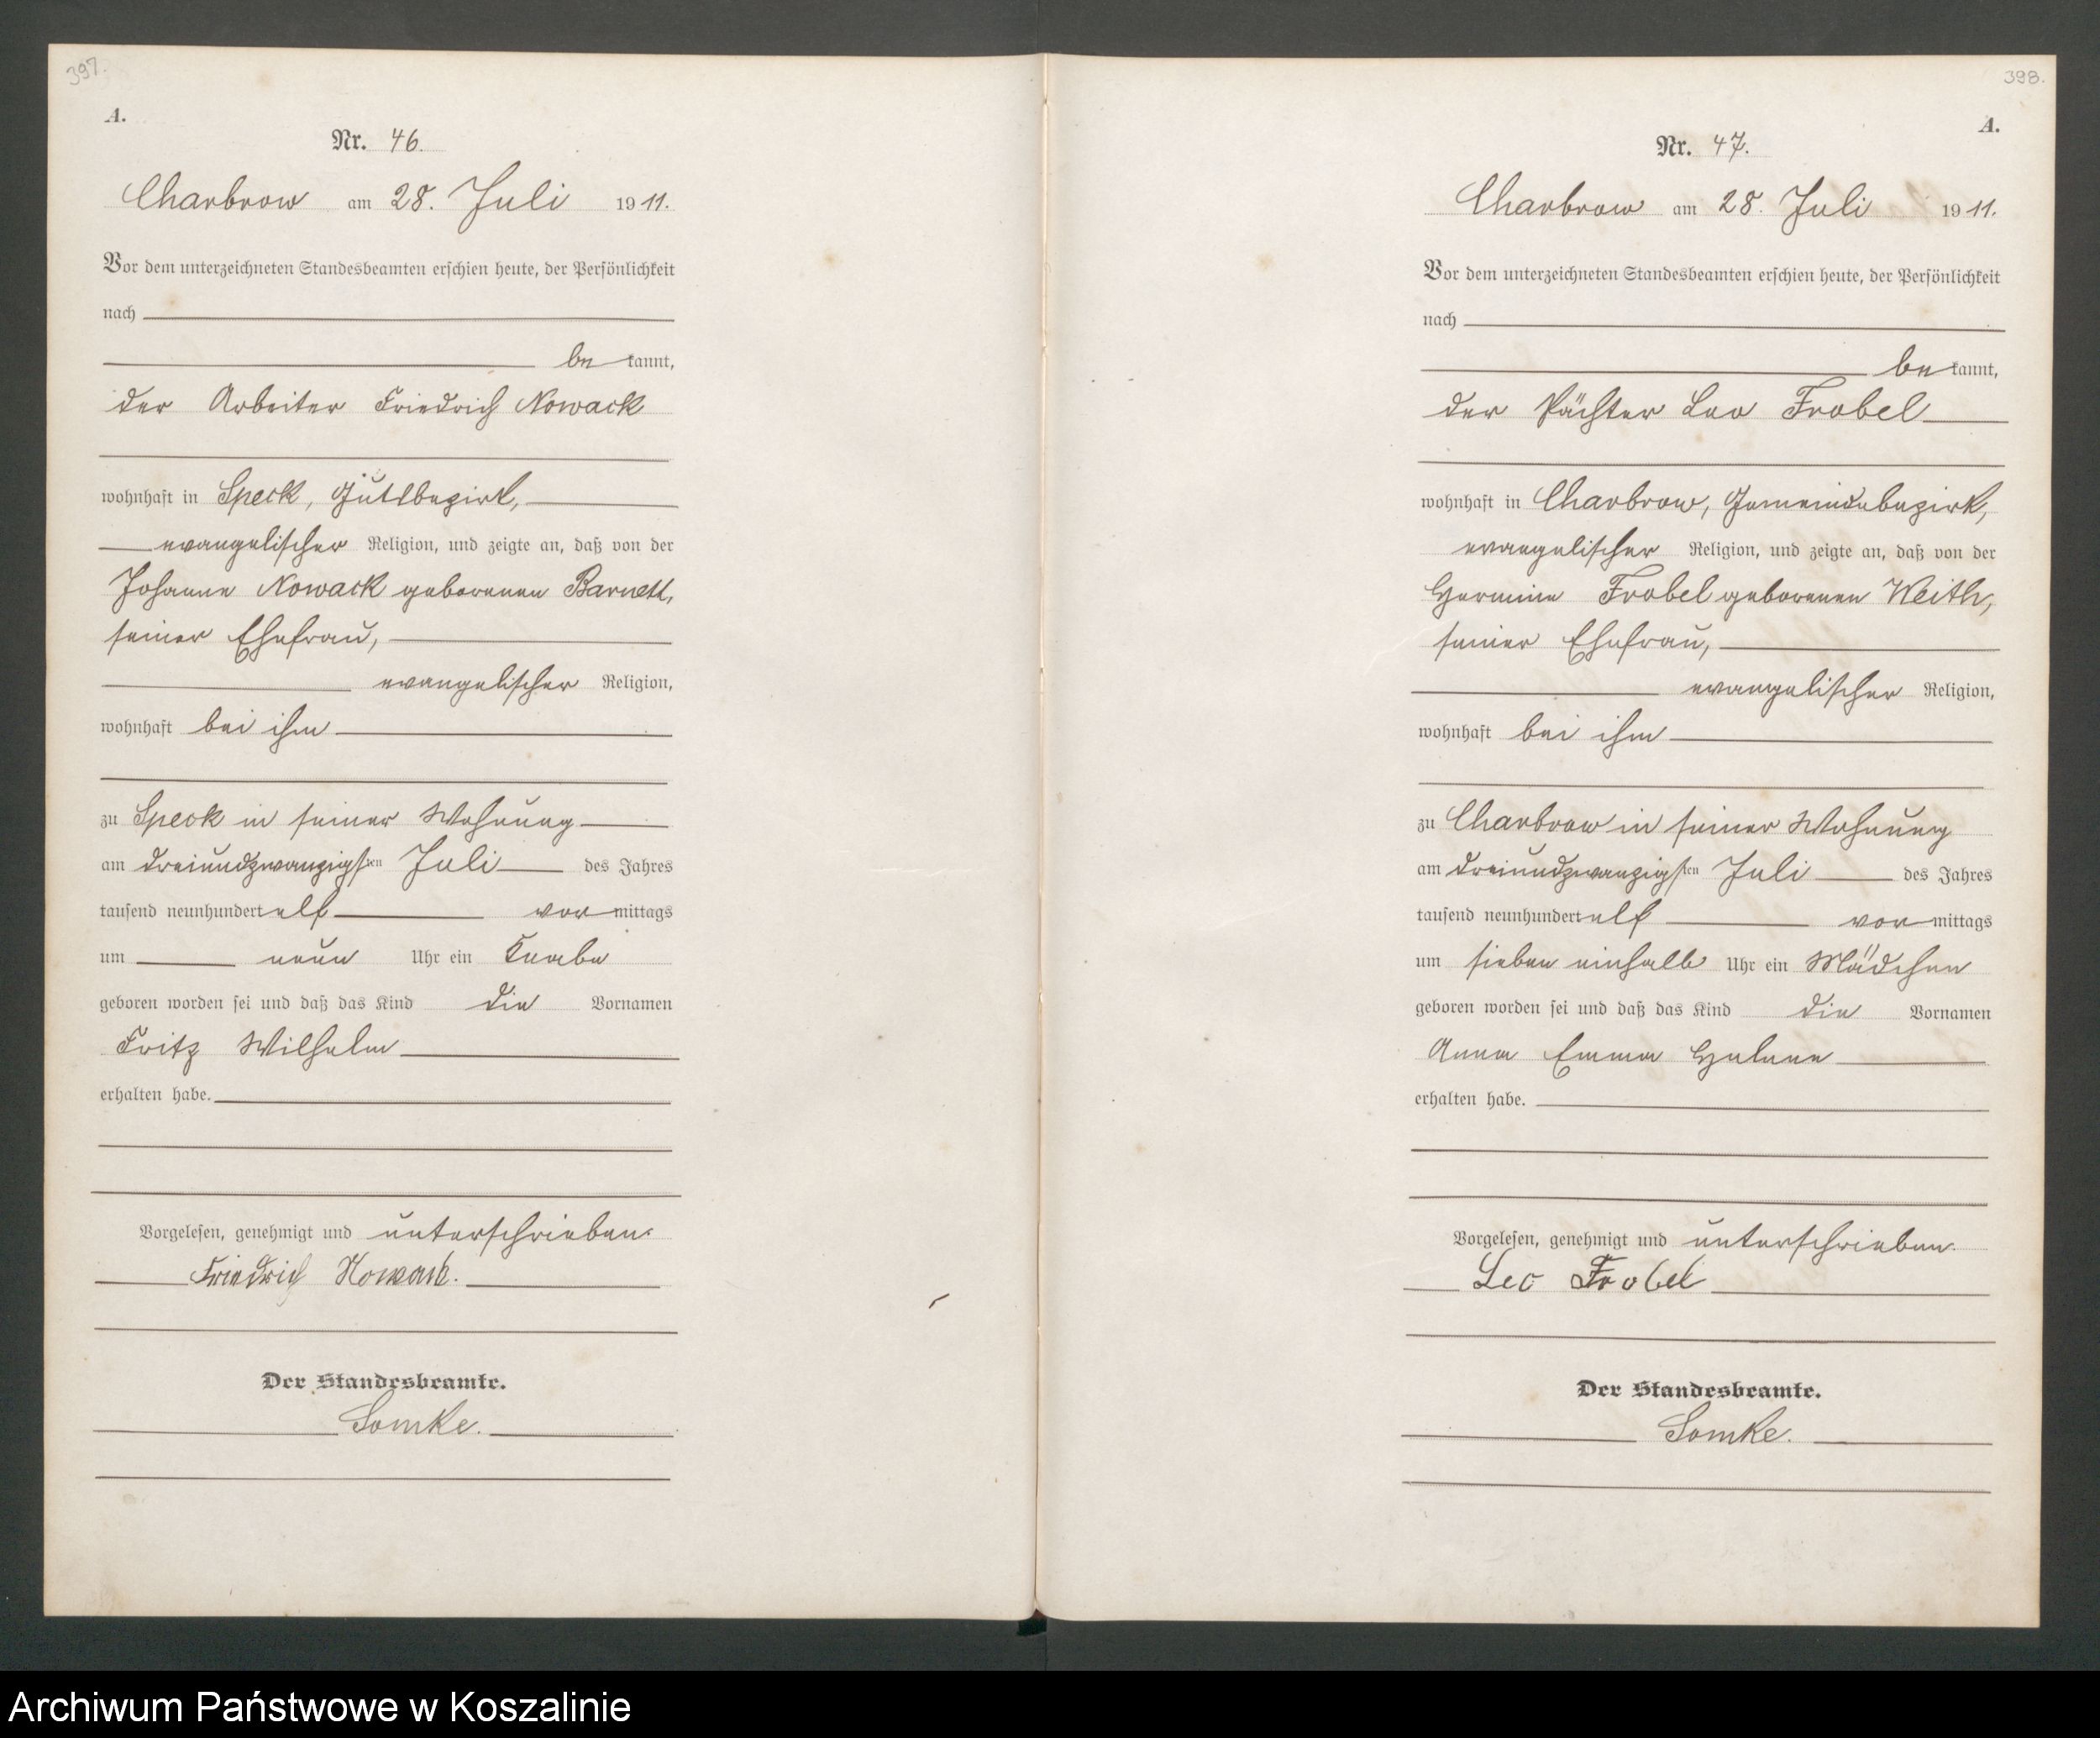 397.
A.
Nr. 46.
Charbrow am 28. Juli 1911.
Vor dem unterzeichneten Standesbeamten erschien heute, der Persönlichkeit
nach
be kannt,
der Arbeiter Friedrich Nowack
wohnhaft in Speck, Gutsbezirk,
evangelischer Religion, und zeigte an, daß von der
Johanne Nowack geborenen
seiner Ehefrau,
evangelischer Religion,
wohnhaft bei ihm
zu Speck in seiner Wohnung
am dreiundzwanzigsten Juli des Jahres
tausend neunhundert elf vor mittags
um neun Uhr ein Knabe
geboren worden sei und daß das Kind die Vornamen
Fritz Wilhelm
erhalten habe.
Vorgelesen, genehmigt und unterschrieben.
Friedrich Nowack.
Der Standesbeamte.
Somke.
398.
A.
Nr. 47.
Charbrow am 28. Juli 1911.
Vor dem unterzeichneten Standesbeamten erschien heute, der Persönlichkeit
nach
be kannt,
der Pächter Leo Frobel
wohnhaft in Charbrow, Gemeindebezirk,
evangelischer Religion, und zeigte an, daß von der
Hermine Frobel geborenen Weith,
seiner Ehefrau,
evangelischer Religion,
wohnhaft bei ihm
zu Charbrow in seiner Wohnung
am dreiundzwanzigsten Juli des Jahres
tausend neunhundert elf vor mittags
um sieben einhalb Uhr ein Mädchen
geboren worden sei und daß das Kind die Vornamen
Anna Emma Helene
erhalten habe.
Vorgelesen, genehmigt und unterschrieben.
Leo Frobel
Der Standesbeamte.
Somke.
Archiwum Państwowe w Koszalinie